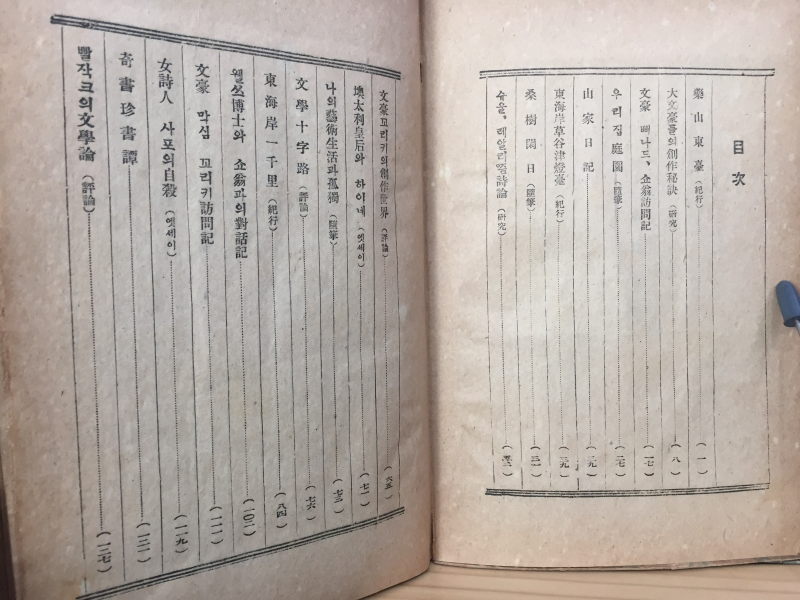 目次
藥山東臺 (紀行) (一)
大文豪들의 創作秘訣 (硏究) (八)
文豪 뻐나드, 쇼翁訪問記 (一七)
우리집 庭園 (隨筆) (二七)
山家日記 (二九)
東海岸草谷津燈臺 (紀行) (三九)
桑樹閑日 (隨筆)
슈올, 레알리즘詩論 (硏究)
文豪꼬리키의 創作世界 (評論) (六五)
墺太利皇后와 하이네 (엣세이) (七一)
나의 藝術生活과 孤獨 (隨筆) (七三)
文學十字路 (評論) (七六)
東海岸一千里 (紀行) (八四)
웰쓰博士와 쇼翁과의 對話記 (一〇一)
文豪 막심 꼬리키訪問記 (一一一)
女詩人 사포의 自殺 (엣세이) (一一九)
奇書珍書譚 (一二一)
빨작크의 文學論 (評論) (一二七)